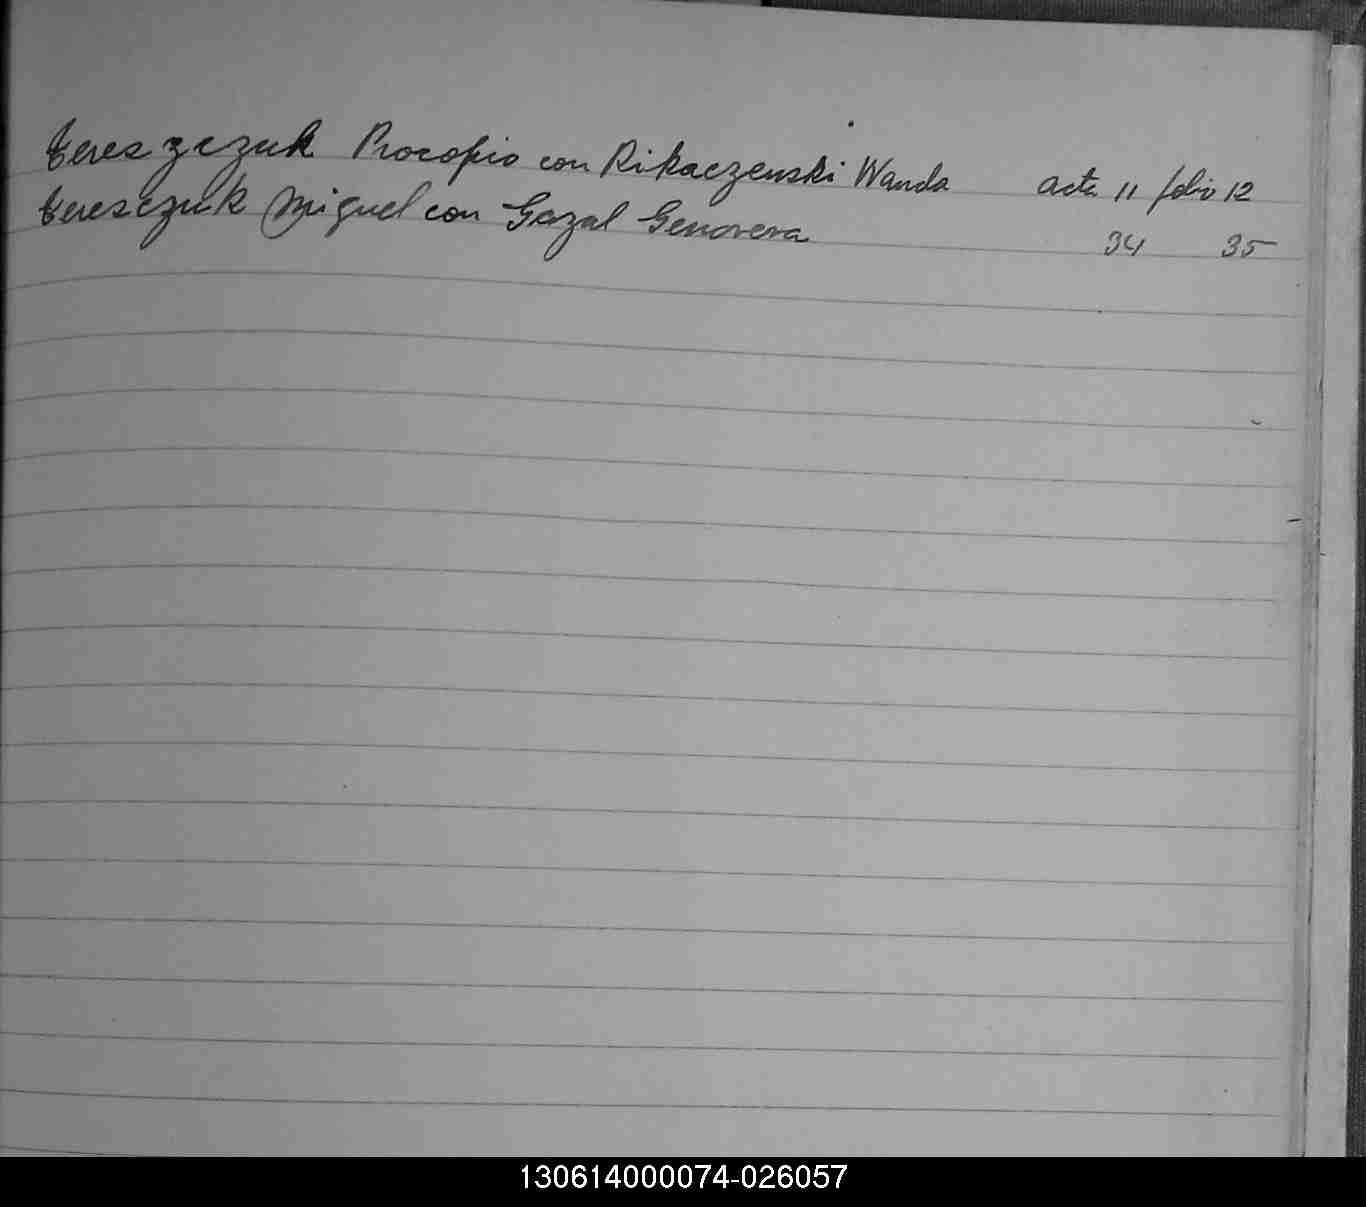 Tereszczuk Procopio con Rikaczenski Wanda acta 11 folio 12
Tereszczuk Miguel con Gazal Genoveva 34 35
130614000074-026057